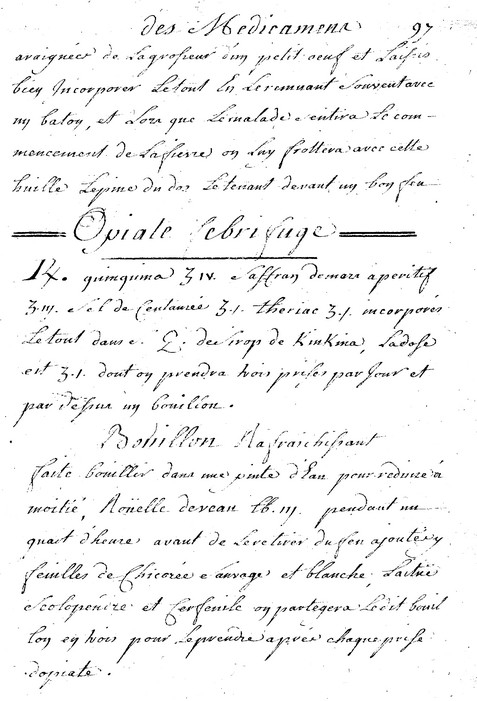 des Medicamens 97
araignées de La grosseur d'un petit oeuf et Laissés
bien Incorporer Le tout En Le remuant Souvent avec
un baton, et Lors que Le malade sentira Le com-
mencement de La fievre on Luy frottera avec cette
huille Lepine du dos Le tenant devant un bon feu
Opiate febrifuge
R. quinquina ʒ IV. Saffran de mars aperitif
ʒ ij. Sel de Centaurée ʒ j. theriac ʒ j. incorporés
Le tout dans de Sirop de KinKina, La dose
est ʒ j. dont on prendra trois prises par Jour et
par dessus un boüillon.
Boüillon Rafraichissant
faite boüillir dans une pinte d'Eau pour reduire à
moitié, Roüelle de veau lb. iij pendant un
quart d'heure avant de Le retirer du feu ajoutés y
feuilles de Chicorée Sauvage et blanche, Laituë
Scolopendre et Cerfeuile on partegera Ledit boüil
lon en trois pour Le prendre après chaque prise
dopiate.